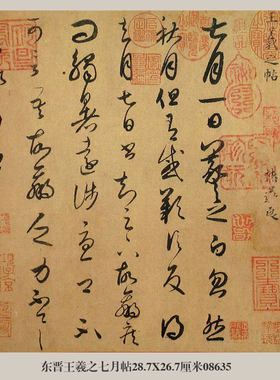 羲之帖
七月一日羲之白忽然
秋月但有感歎信反得
去月七日書知足下故羸疾
問觸暑遠涉憂卿不
可言吾故羸乏力不具
东晋王羲之七月帖28.7X26.7厘米08635